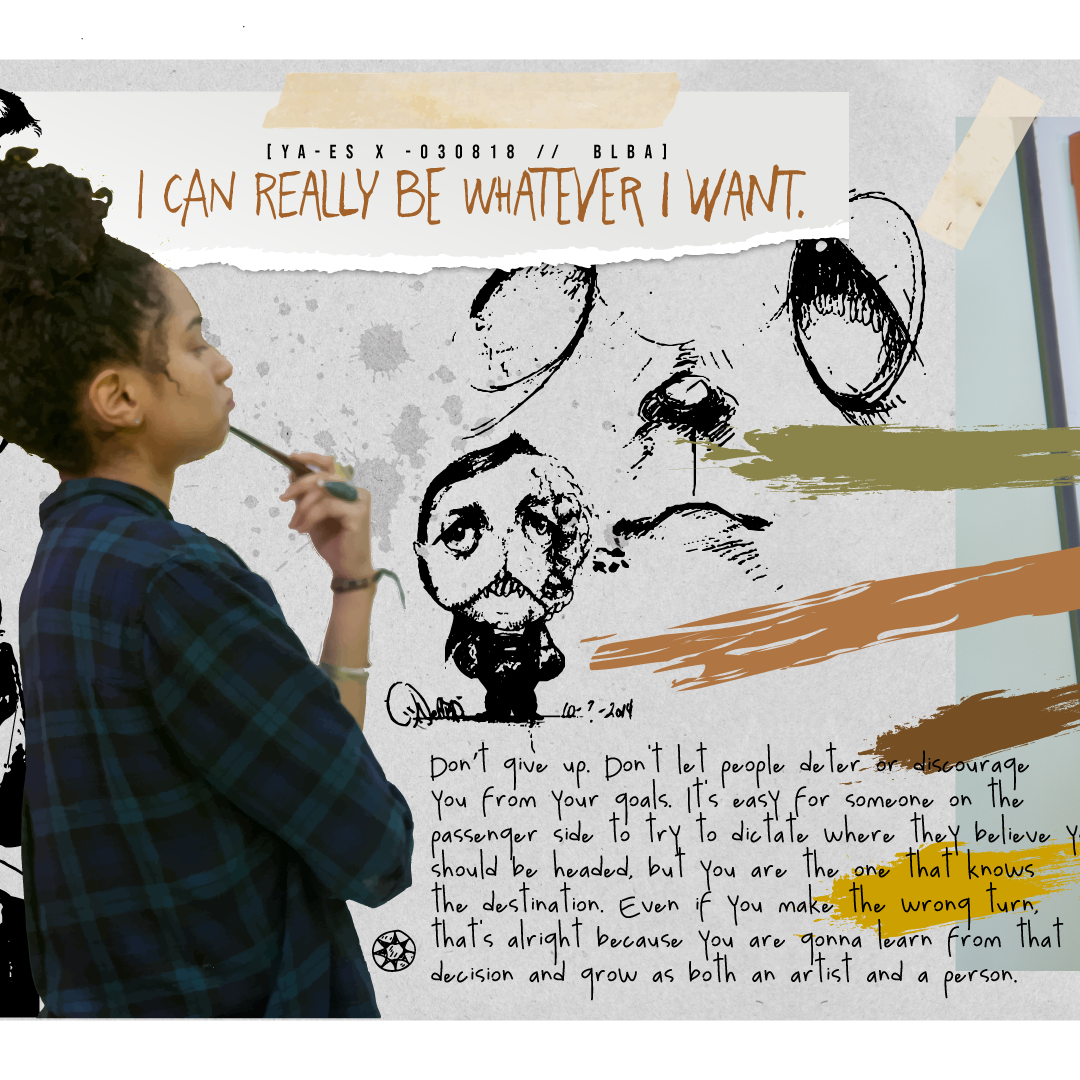 [YA-ES X -030818 // BLBA]
I CAN REALLY BE WHATEVER I WANT.
10-?-2014
Don't give up. Don't let people deter or discourage
you from your goals. It's easy for someone on the
passenger side to try to dictate where they believe
should be headed, but you are the one that knows
the destination. Even if you make the wrong turn,
that's alright because you are gonna learn from that
decision and grow as both an artist and a person.